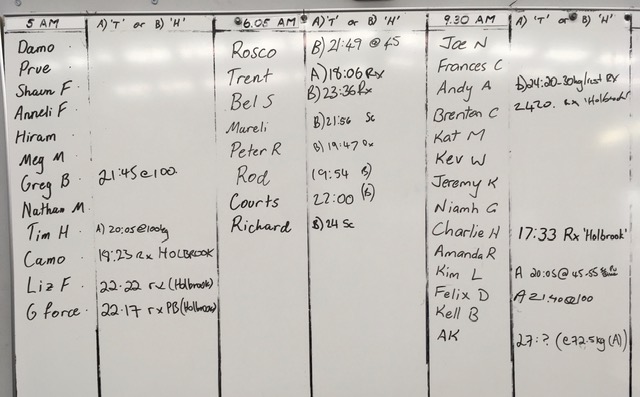 5 AM A) 'T' or B) 'H' 6.05 AM A) 'T' or B) 'H' 9.30 AM A) 'T' or B) 'H'
Damo Rosco B) 21:49 @ 45 Joe N
Prue Trent A) 18:06 Rx Frances C
Shaun F Bel S B) 23:36 Rx Andy A B) 24:20-30kg/rest RX
Anneli F Mareli B) 21:56 Sc Brenton C 2420. Rx 'Holbrook'
Hiram Peter R B) 19:47 Kat M
Meg M Rod 19:54 B) Kev W
Greg B 21:45@100 Courts 22:00 (B) Jeremy K
Nathan M Richard B) 24 Sc Niamh G
Tim H A) 20:05@100kg Charlie H 17:33 Rx 'Holbrook'
Camo 19:23 Rx HOLBROOK Amanda R
Liz F 22.22 rx (Holbrook) Kim L A 20:05@ 45.55
G force 22.17 rx PB (Holbrook) Felix D A 21.40@100
Kell B
AK 27:? (@72.5kg (A))